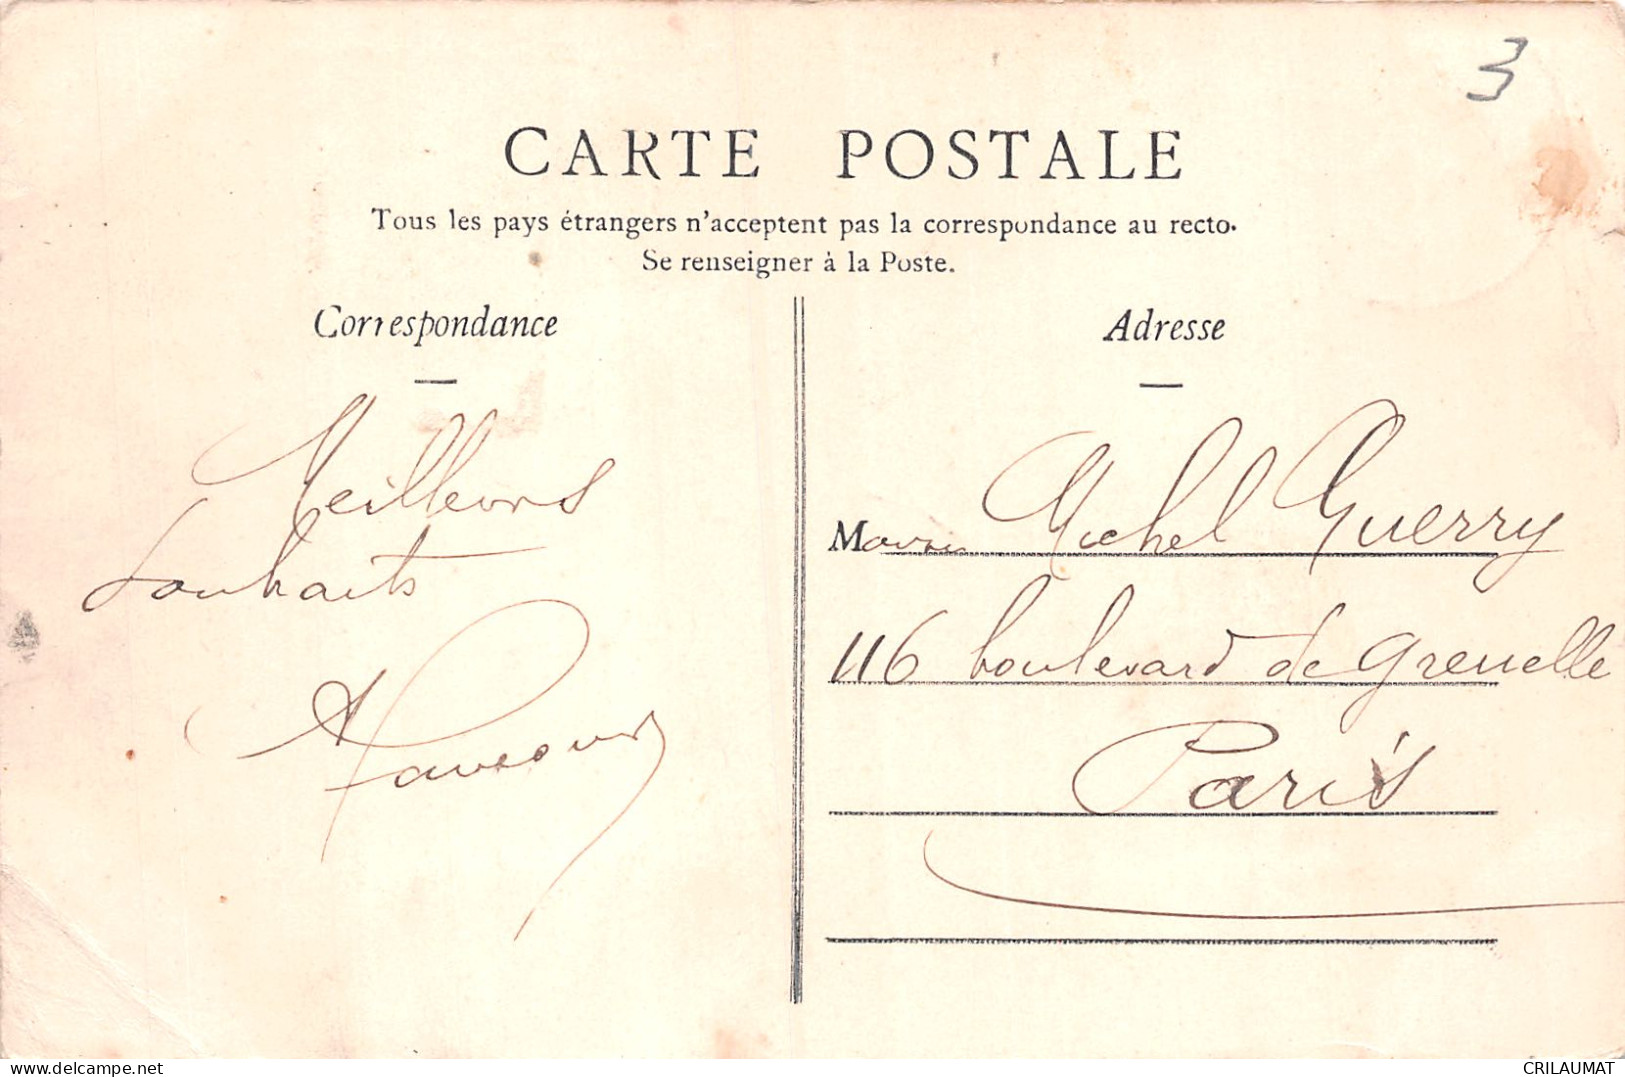 3
CARTE POSTALE
Tous les pays étrangers n'acceptent pas la correspondance au recto.
Se renseigner à la Poste.
Correspondance
Meilleurs
Souhaits
Adresse
Michel Guerry
116 boulevard de Grenelle
Paris
delcampe.net
CRILAUMAT